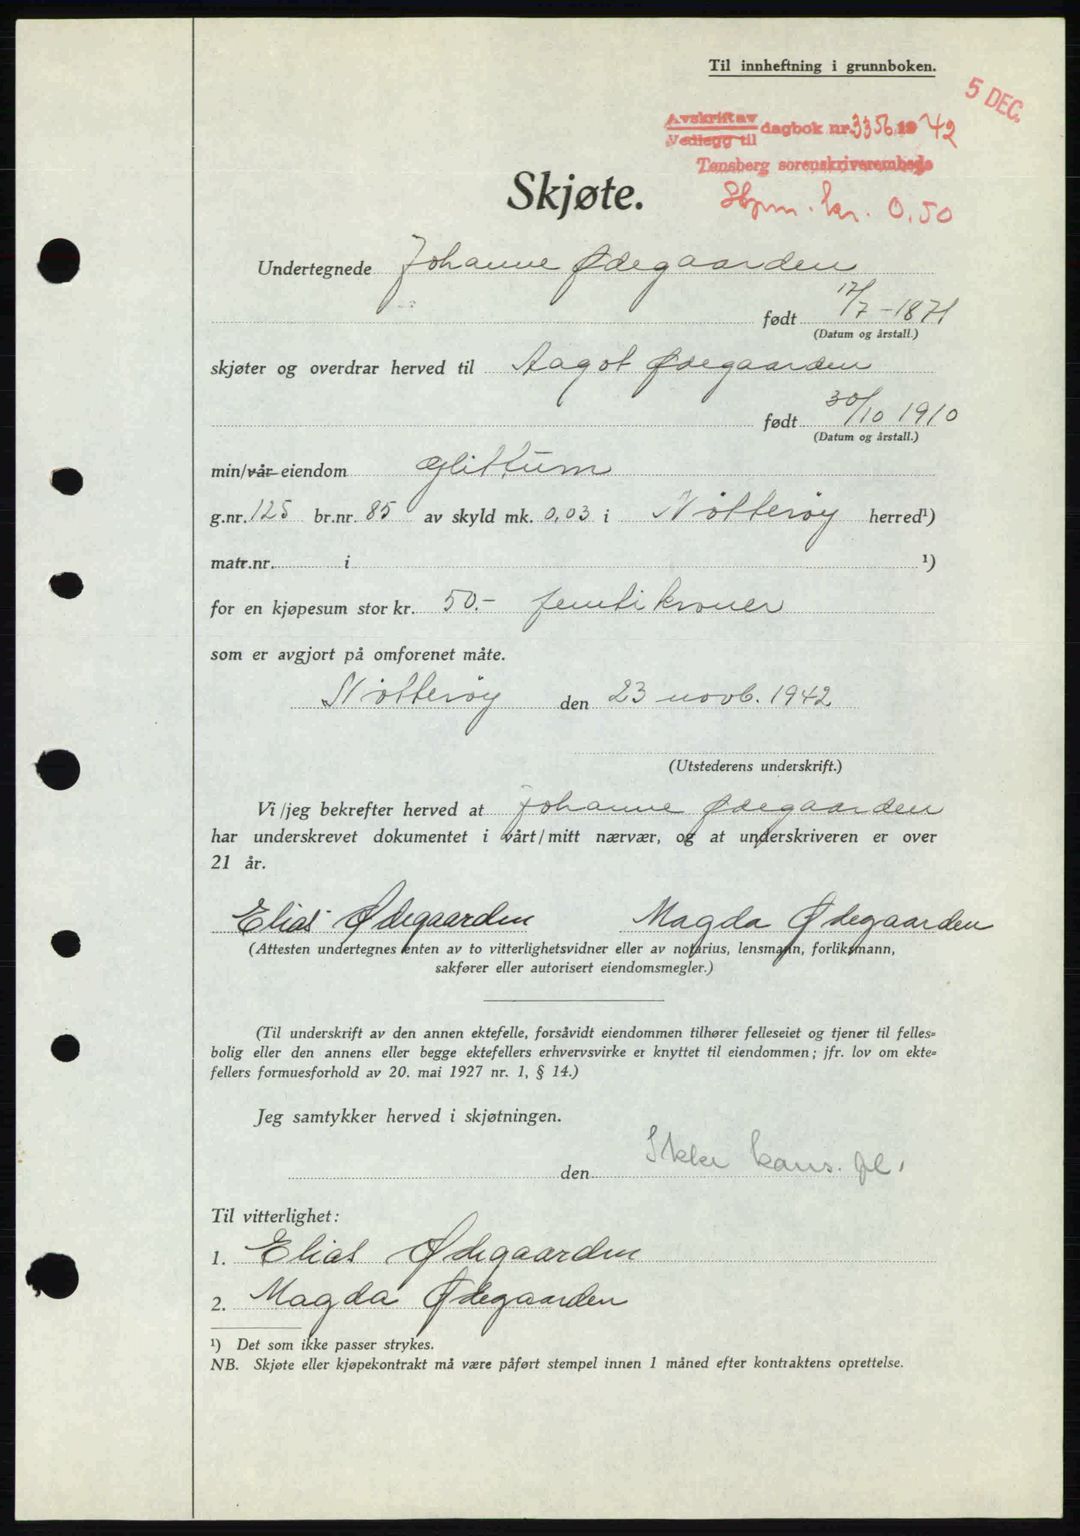 Til innheftning i grunnboken.
5 DEC.
Avskrift av
Vedlegg til dagbok nr. 3356 1942
Tønsberg sorenskriverembede
Skjøte.
Stpm. kr. 0.50
Undertegnede Johanne Ødegaarden
født 17/7-1871
(Datum og årstall.)
skjøter og overdrar herved til Aagot Ødegaarden
født 30/10 1910
(Datum og årstall.)
min/vår eiendom Glittum
g.nr. 125 br.nr. 85 av skyld mk. 0,03 i Nøtterøy herred¹)
matr.nr. i ¹)
for en kjøpesum stor kr. 50.- femti kroner
som er avgjort på omforenet måte.
Nøtterøy den 23 novb. 1942
(Utstederens underskrift.)
Vi/jeg bekrefter herved at Johanne Ødegaarden
har underskrevet dokumentet i vårt/mitt nærvær, og at underskriveren er over
21 år.
Elias Ødegaarden Magda Ødegaarden
(Attesten undertegnes enten av to vitterlighetsvidner eller av notarius, lensmann, forliksmann,
sakfører eller autorisert eiendomsmegler.)
(Til underskrift av den annen ektefelle, forsåvidt eiendommen tilhører felleseiet og tjener til felles=
bolig eller den annens eller begge ektefellers erhvervsvirke er knyttet til eiendommen; jfr. lov om ekte=
fellers formuesforhold av 20. mai 1927 nr. 1, § 14.)
Jeg samtykker herved i skjøtningen.
den Ikke kons. pl.
Til vitterlighet:
1. Elias Ødegaarden
2. Magda Ødegaarden
¹) Det som ikke passer strykes.
NB. Skjøte eller kjøpekontrakt må være påført stempel innen 1 måned efter kontraktens oprettelse.